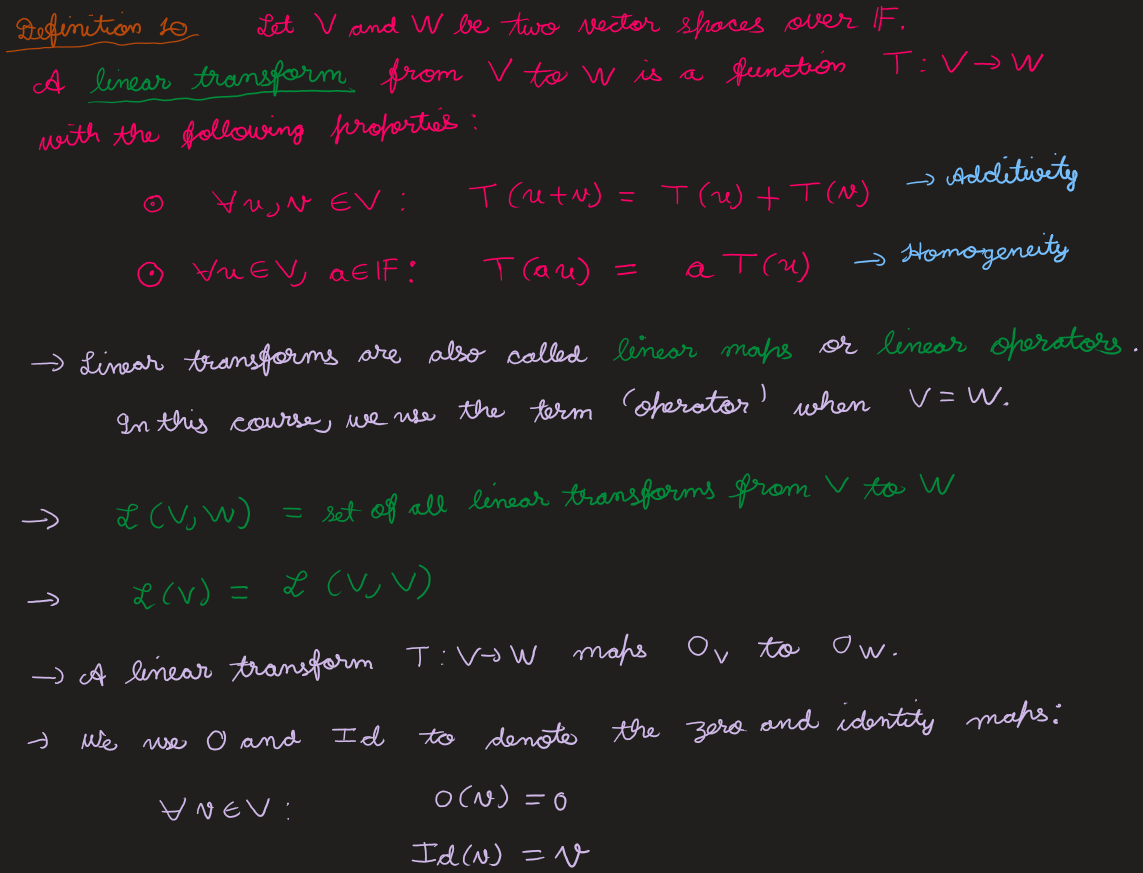 Definition 10 Let V and W be two vector spaces over 𝔽.
A linear transform from V to W is a function T : V → W
with the following properties :
⊙ ∀u, v ∈ V : T(u+v) = T(u) + T(v) → Additivity
⊙ ∀u ∈ V, a ∈ 𝔽 : T(au) = a T(u) → Homogeneity
→ Linear transforms are also called linear maps or linear operators.
In this course, we use the term 'operator' when V = W.
→ ℒ(V, W) = set of all linear transforms from V to W
→ ℒ(V) = ℒ(V, V)
→ A linear transform T : V → W maps 0_V to 0_W.
→ We use 0 and Id to denote the zero and identity maps :
∀ v ∈ V : 0(v) = 0
Id(v) = v